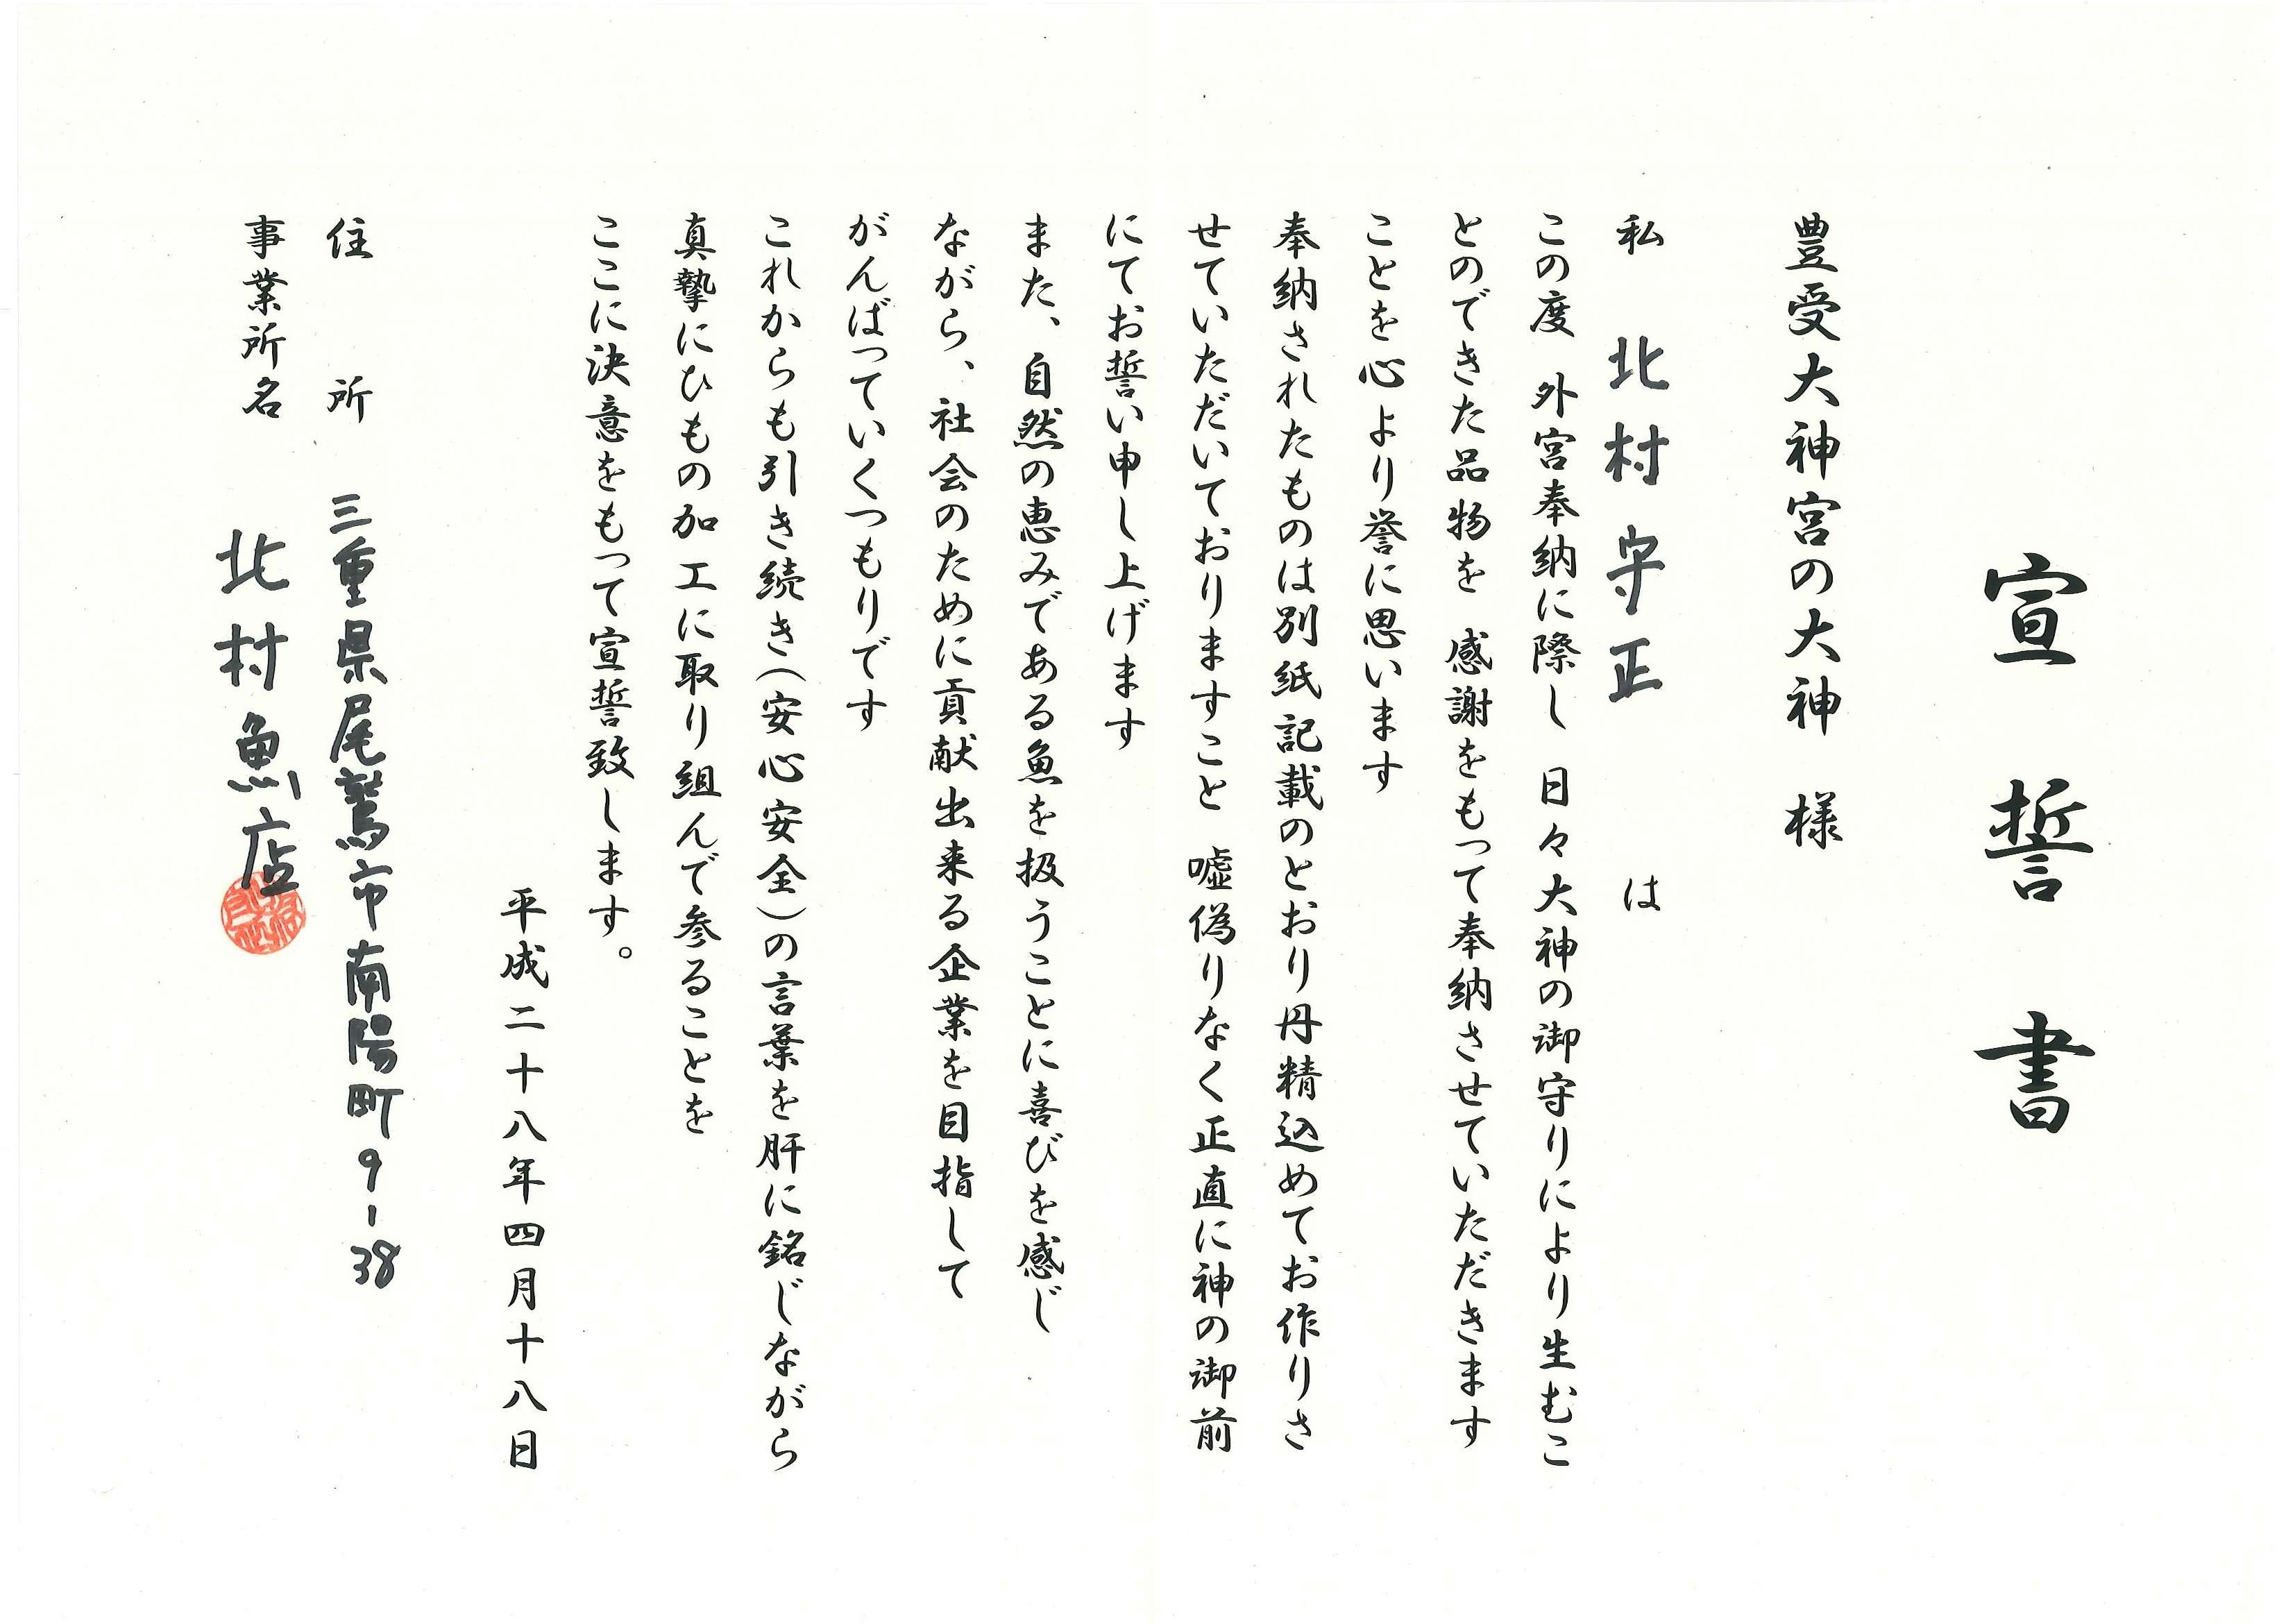 宣誓書
豊受大神宮の大神 様
私 北村 守正 は
この度 外宮奉納に際し 日々大神の御守りにより生むこ
とのできた品物を 感謝をもって奉納させていただきます
ことを心より誉に思います
奉納されたものは別紙記載のとおり丹精込めてお作りさ
せていただいておりますこと 嘘偽りなく正直に神の御前
にてお誓い申し上げます
また、自然の恵みである魚を扱うことに喜びを感じ
ながら、社会のために貢献出来る企業を目指して
がんばっていくつもりです
これからも引き続き(安心安全)の言葉を肝に銘じながら
真摯にひもの加工に取り組んで参ることを
ここに決意をもって宣誓致します。
平成二十八年四月十八日
住所 三重県尾鷲市南陽町9-38
事業所名 北村魚店